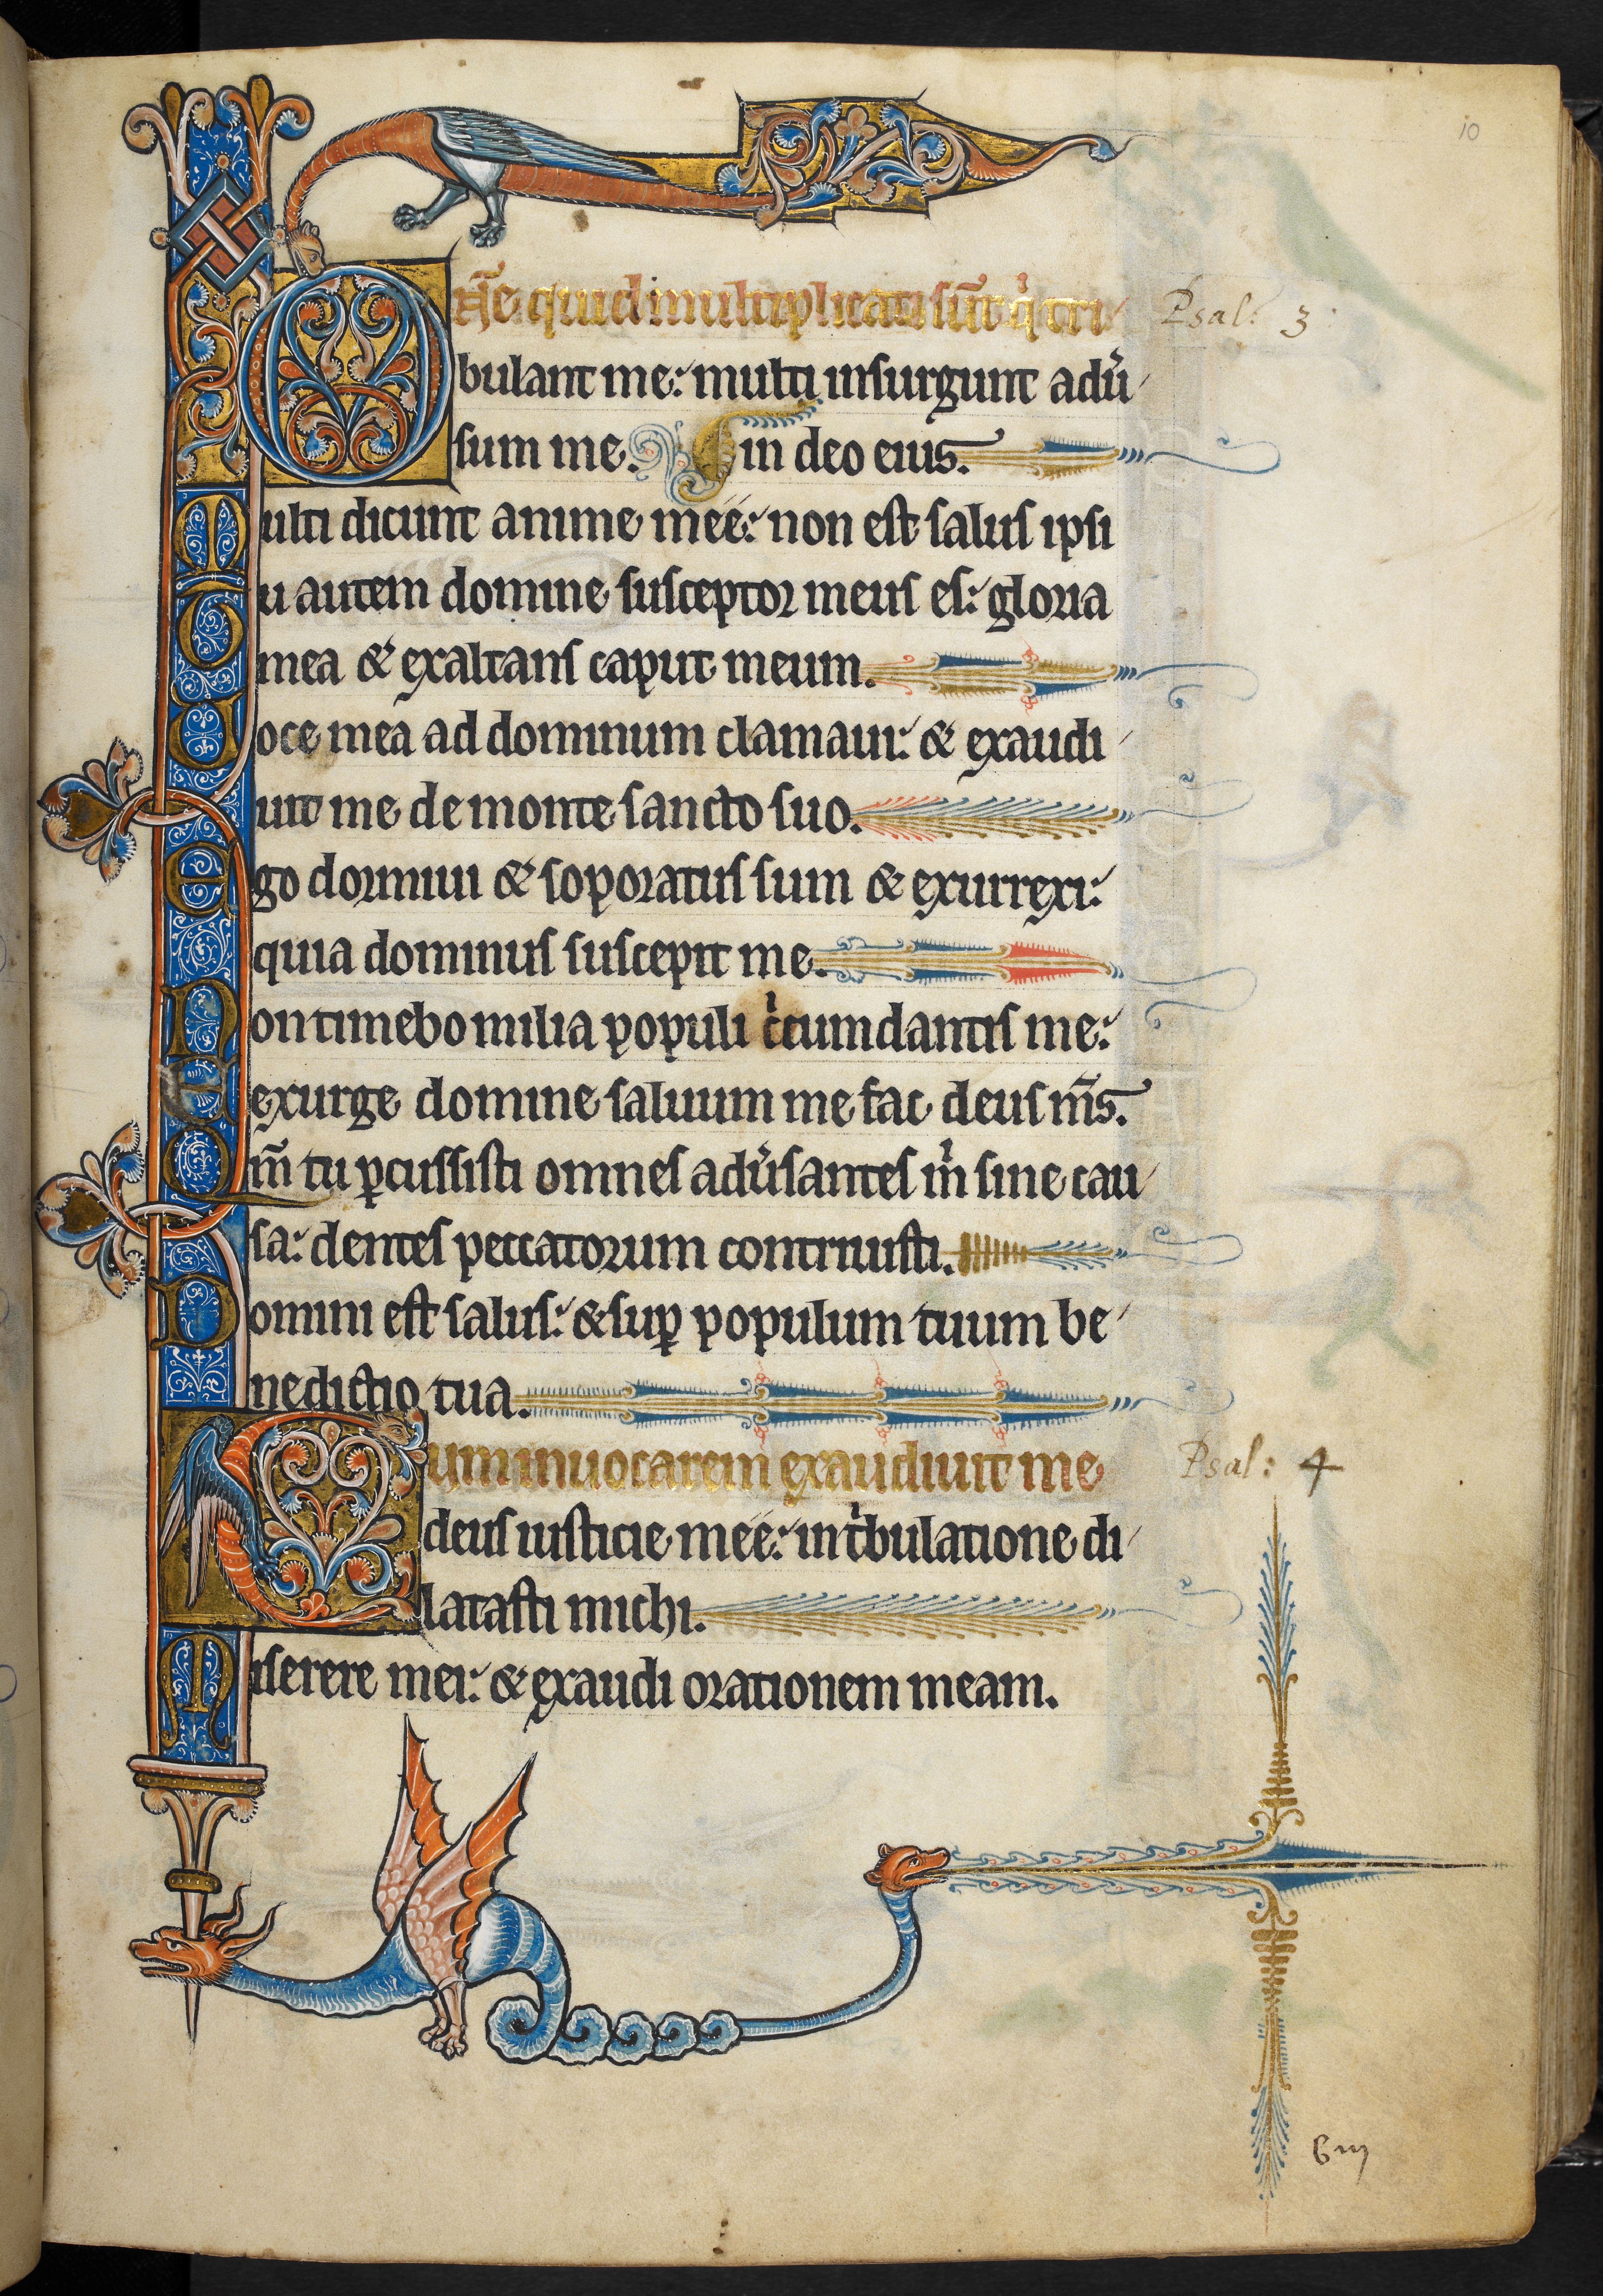 10
Dn̄e quid multiplicati sūt qͥ tri
Psal: 3
bulant me: multi insurgunt adũ
sum me. in deo eius.
Multi dicunt anime mee: non est salus ipsi
Tu autem domine susceptor meus es: gloria
mea & exaltans caput meum.
Voce mea ad dominum clamaui: & exaudi
uit me de monte sancto suo.
Ego dormiui & soporatus sum & exurrexi:
quia dominus suscepit me.
Non timebo milia populi cͥcumdantis me:
exurge domine saluum me fac deus m̄s.
Qm̄ tu ꝑcussisti omnes adũsantes mͥ sine cau
sa: dentes peccatorum contriuisti.
Domini est salus: & suꝑ populum tuum be
nedictio tua.
Cum inuocarem exaudiuit me
Psal: 4
deus iusticie mee: in tͥbulatione di
latasti michi.
Miserere mei: & exaudi orationem meam.